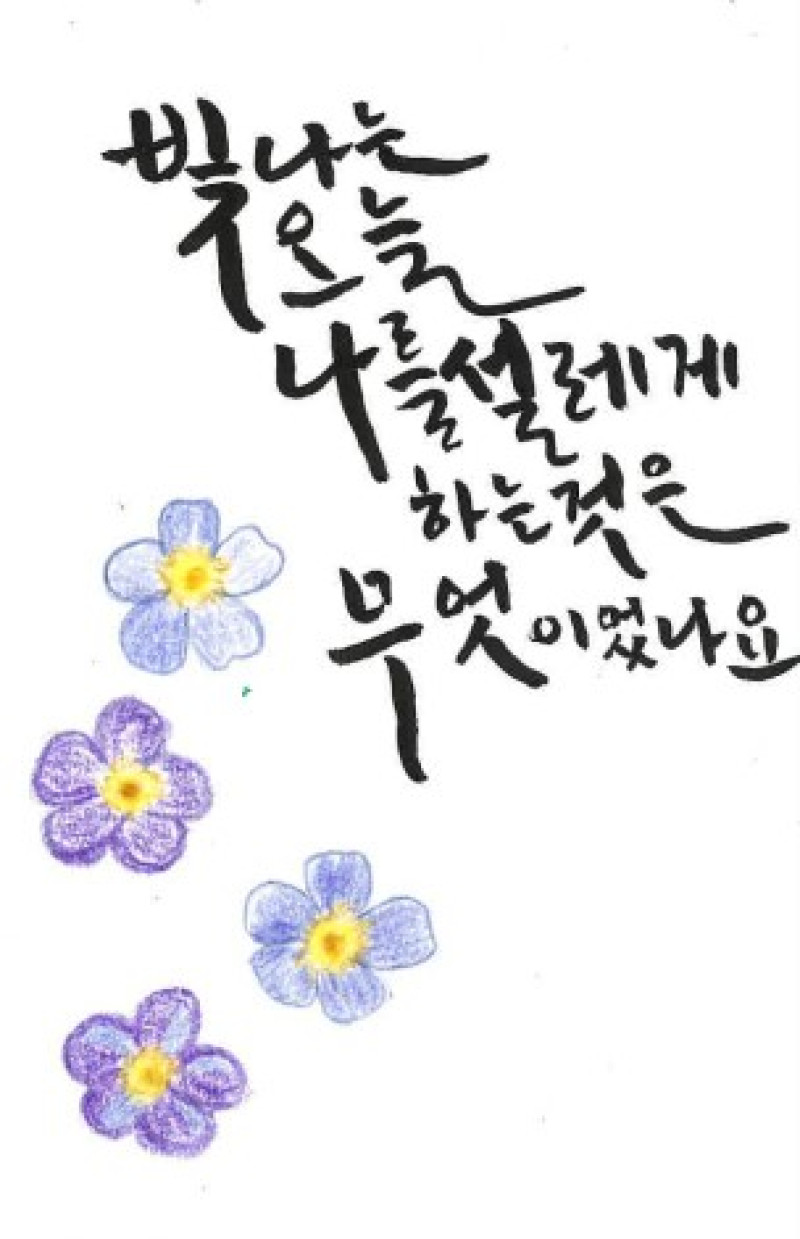 빛나는
오늘
나를 설레게
하는 것은
무엇이었나요